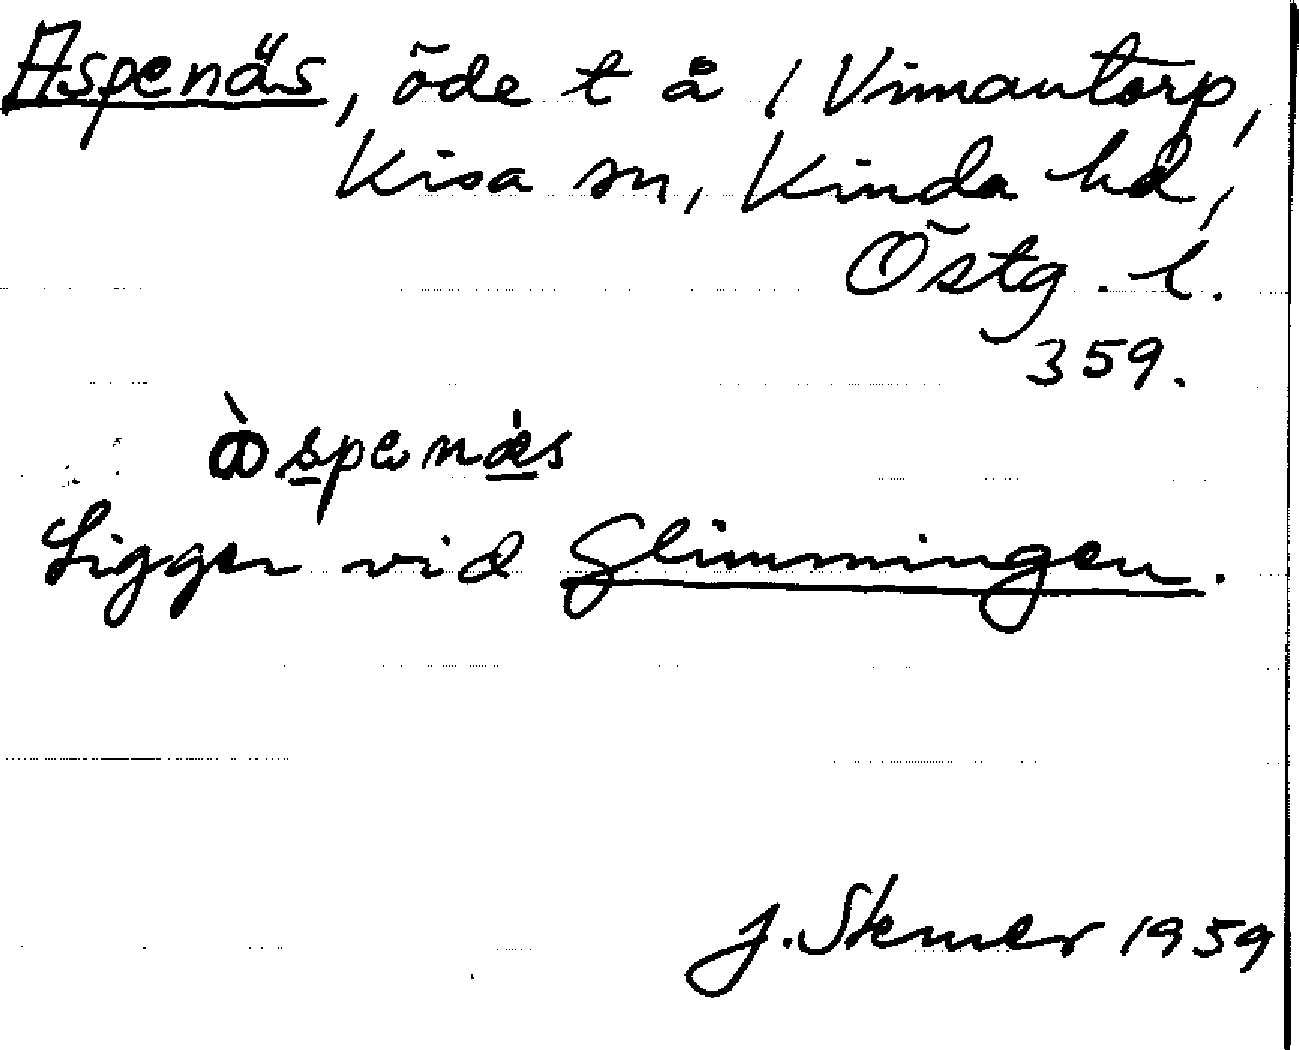 Aspenäs, öde t å 1 Vimantorp,
Kisa sn, Kinda hd,
Östg. l.
359.
ꝏ̀spenæs
Ligger vid Glimmingen.
J. Skener 1959